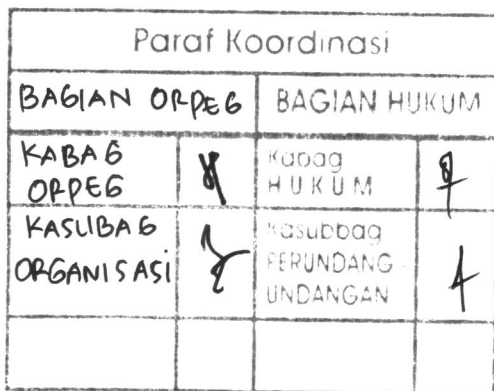 Paraf Koordinasi
BAGIAN ORPEG BAGIAN HUKUM
KABAG
ORPEG
Kabag
HUKUM
KASUBAG
ORGANISASI
Kasubbag
PERUNDANG -
UNDANGAN